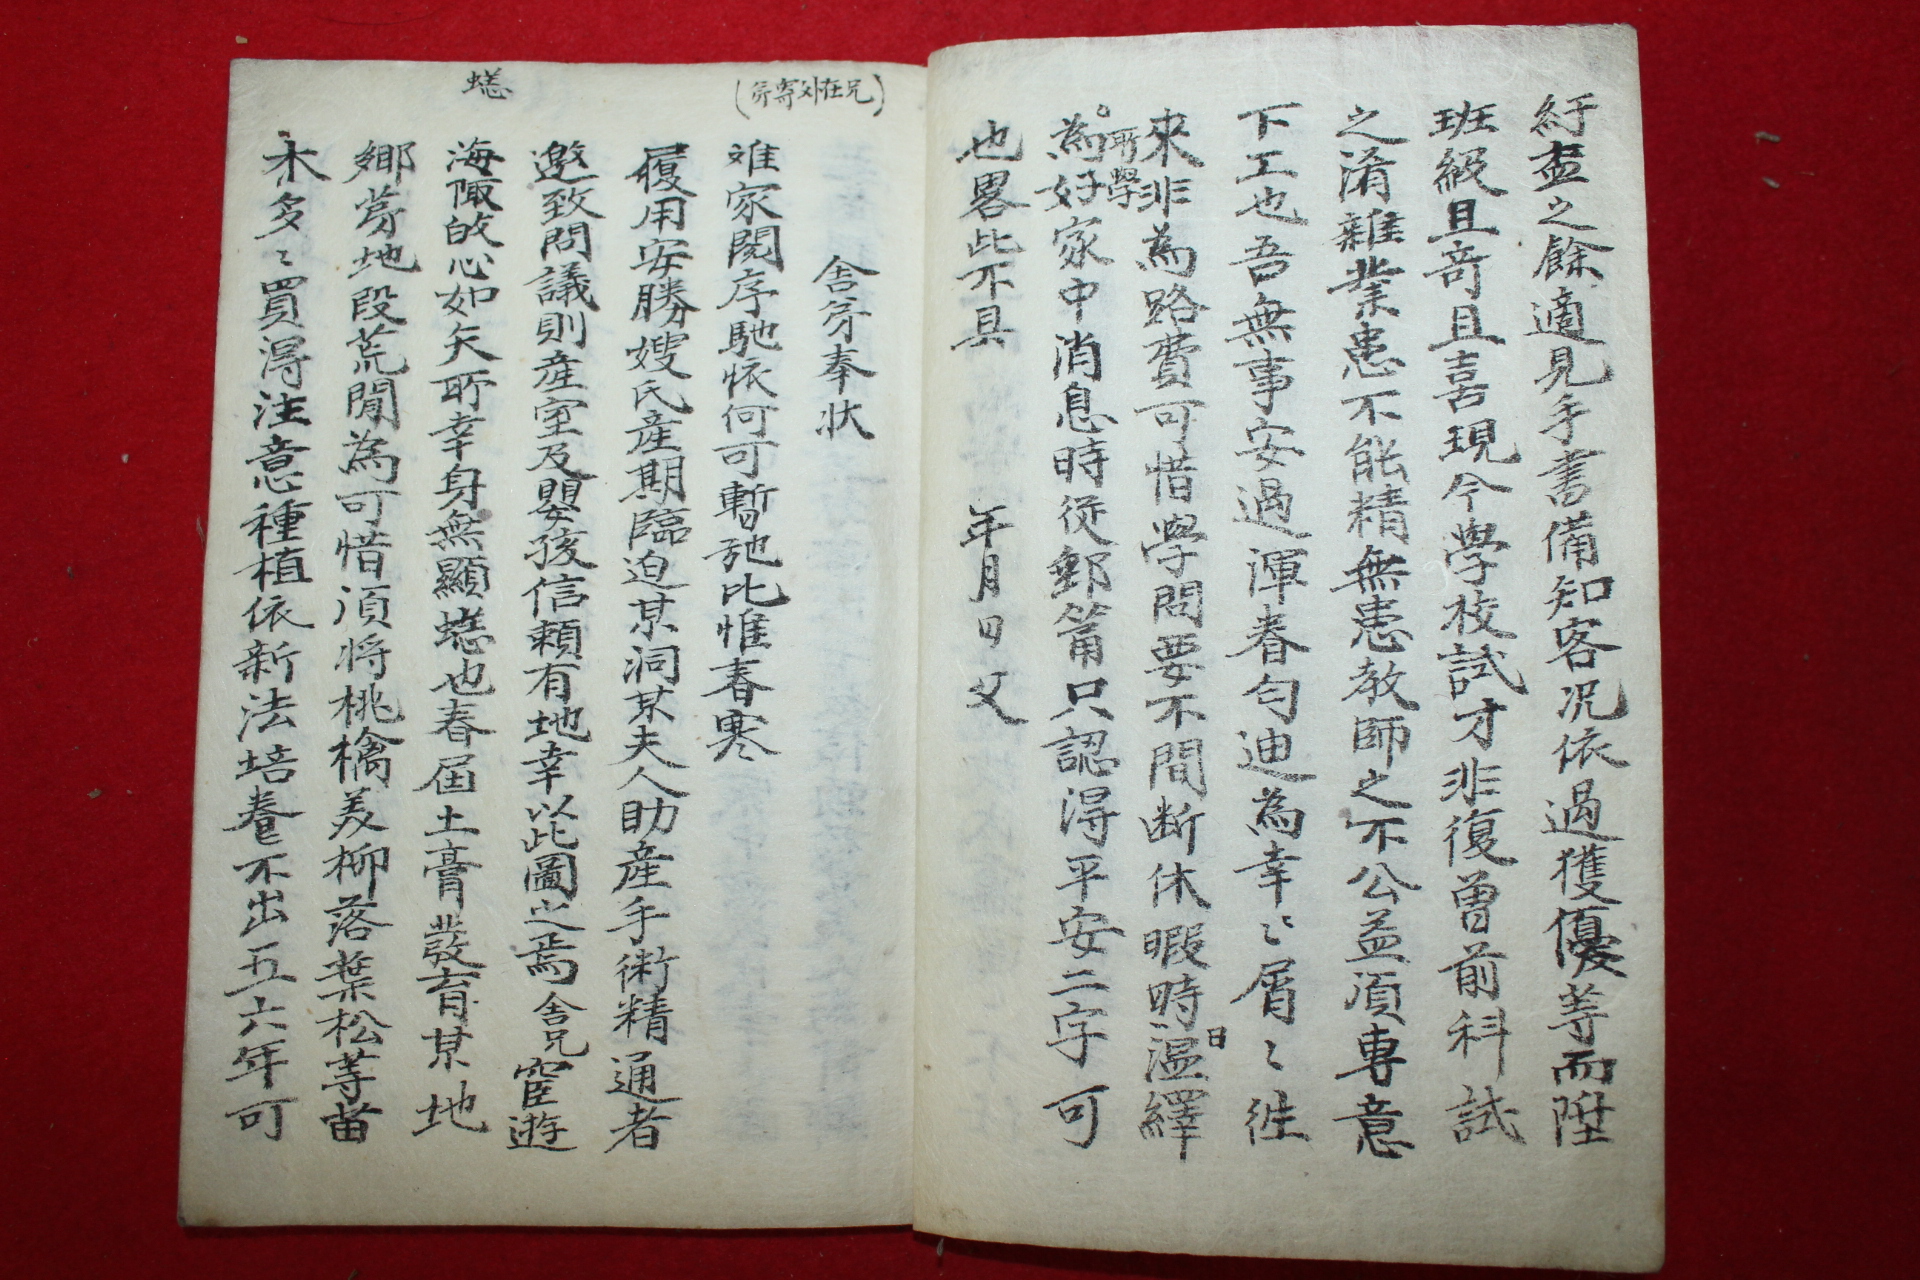 紆盃之餘適見手書備知客况依過獲優等而陞
班級且奇且喜現今學校試才非復曽前科試
之淆雜業患不能精無患教師之不公益湏專意
下工也吾無事安過渾眷勻迪為幸〻層〻徃
來非為路費可惜學問要不間断休暇時日温繹
所學
為好家中消息時從郵筩只認淂平安二字可
也畧此不具 年月日父
舍弟奉狀
(兄在外寄弟)
雖家閱序馳悵何可暫弛比惟春寒
履用安勝嫂氏產期臨迫某洞某夫人助產手術精通者
邀致問議則產室及嬰孩信賴有地幸以此圖之焉舍兄宦遊
海陬皈心如矢所幸身無顯蟋也春届土膏發育某地
蟋
鄉莠地段荒閒為可惜湏将桃檎美柳落葉松等苗
木多〻買淂注意種植依新法培養不出五六年可